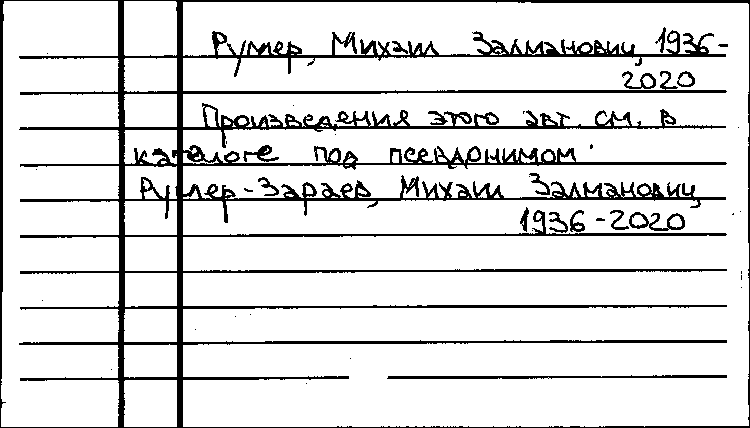 Румер, Михаил Залманович, 1936-
2020
Произведения этого авт. см. в
каталоге под псевдонимом:
Румер-Зараев, Михаил Залманович,
1936-2020